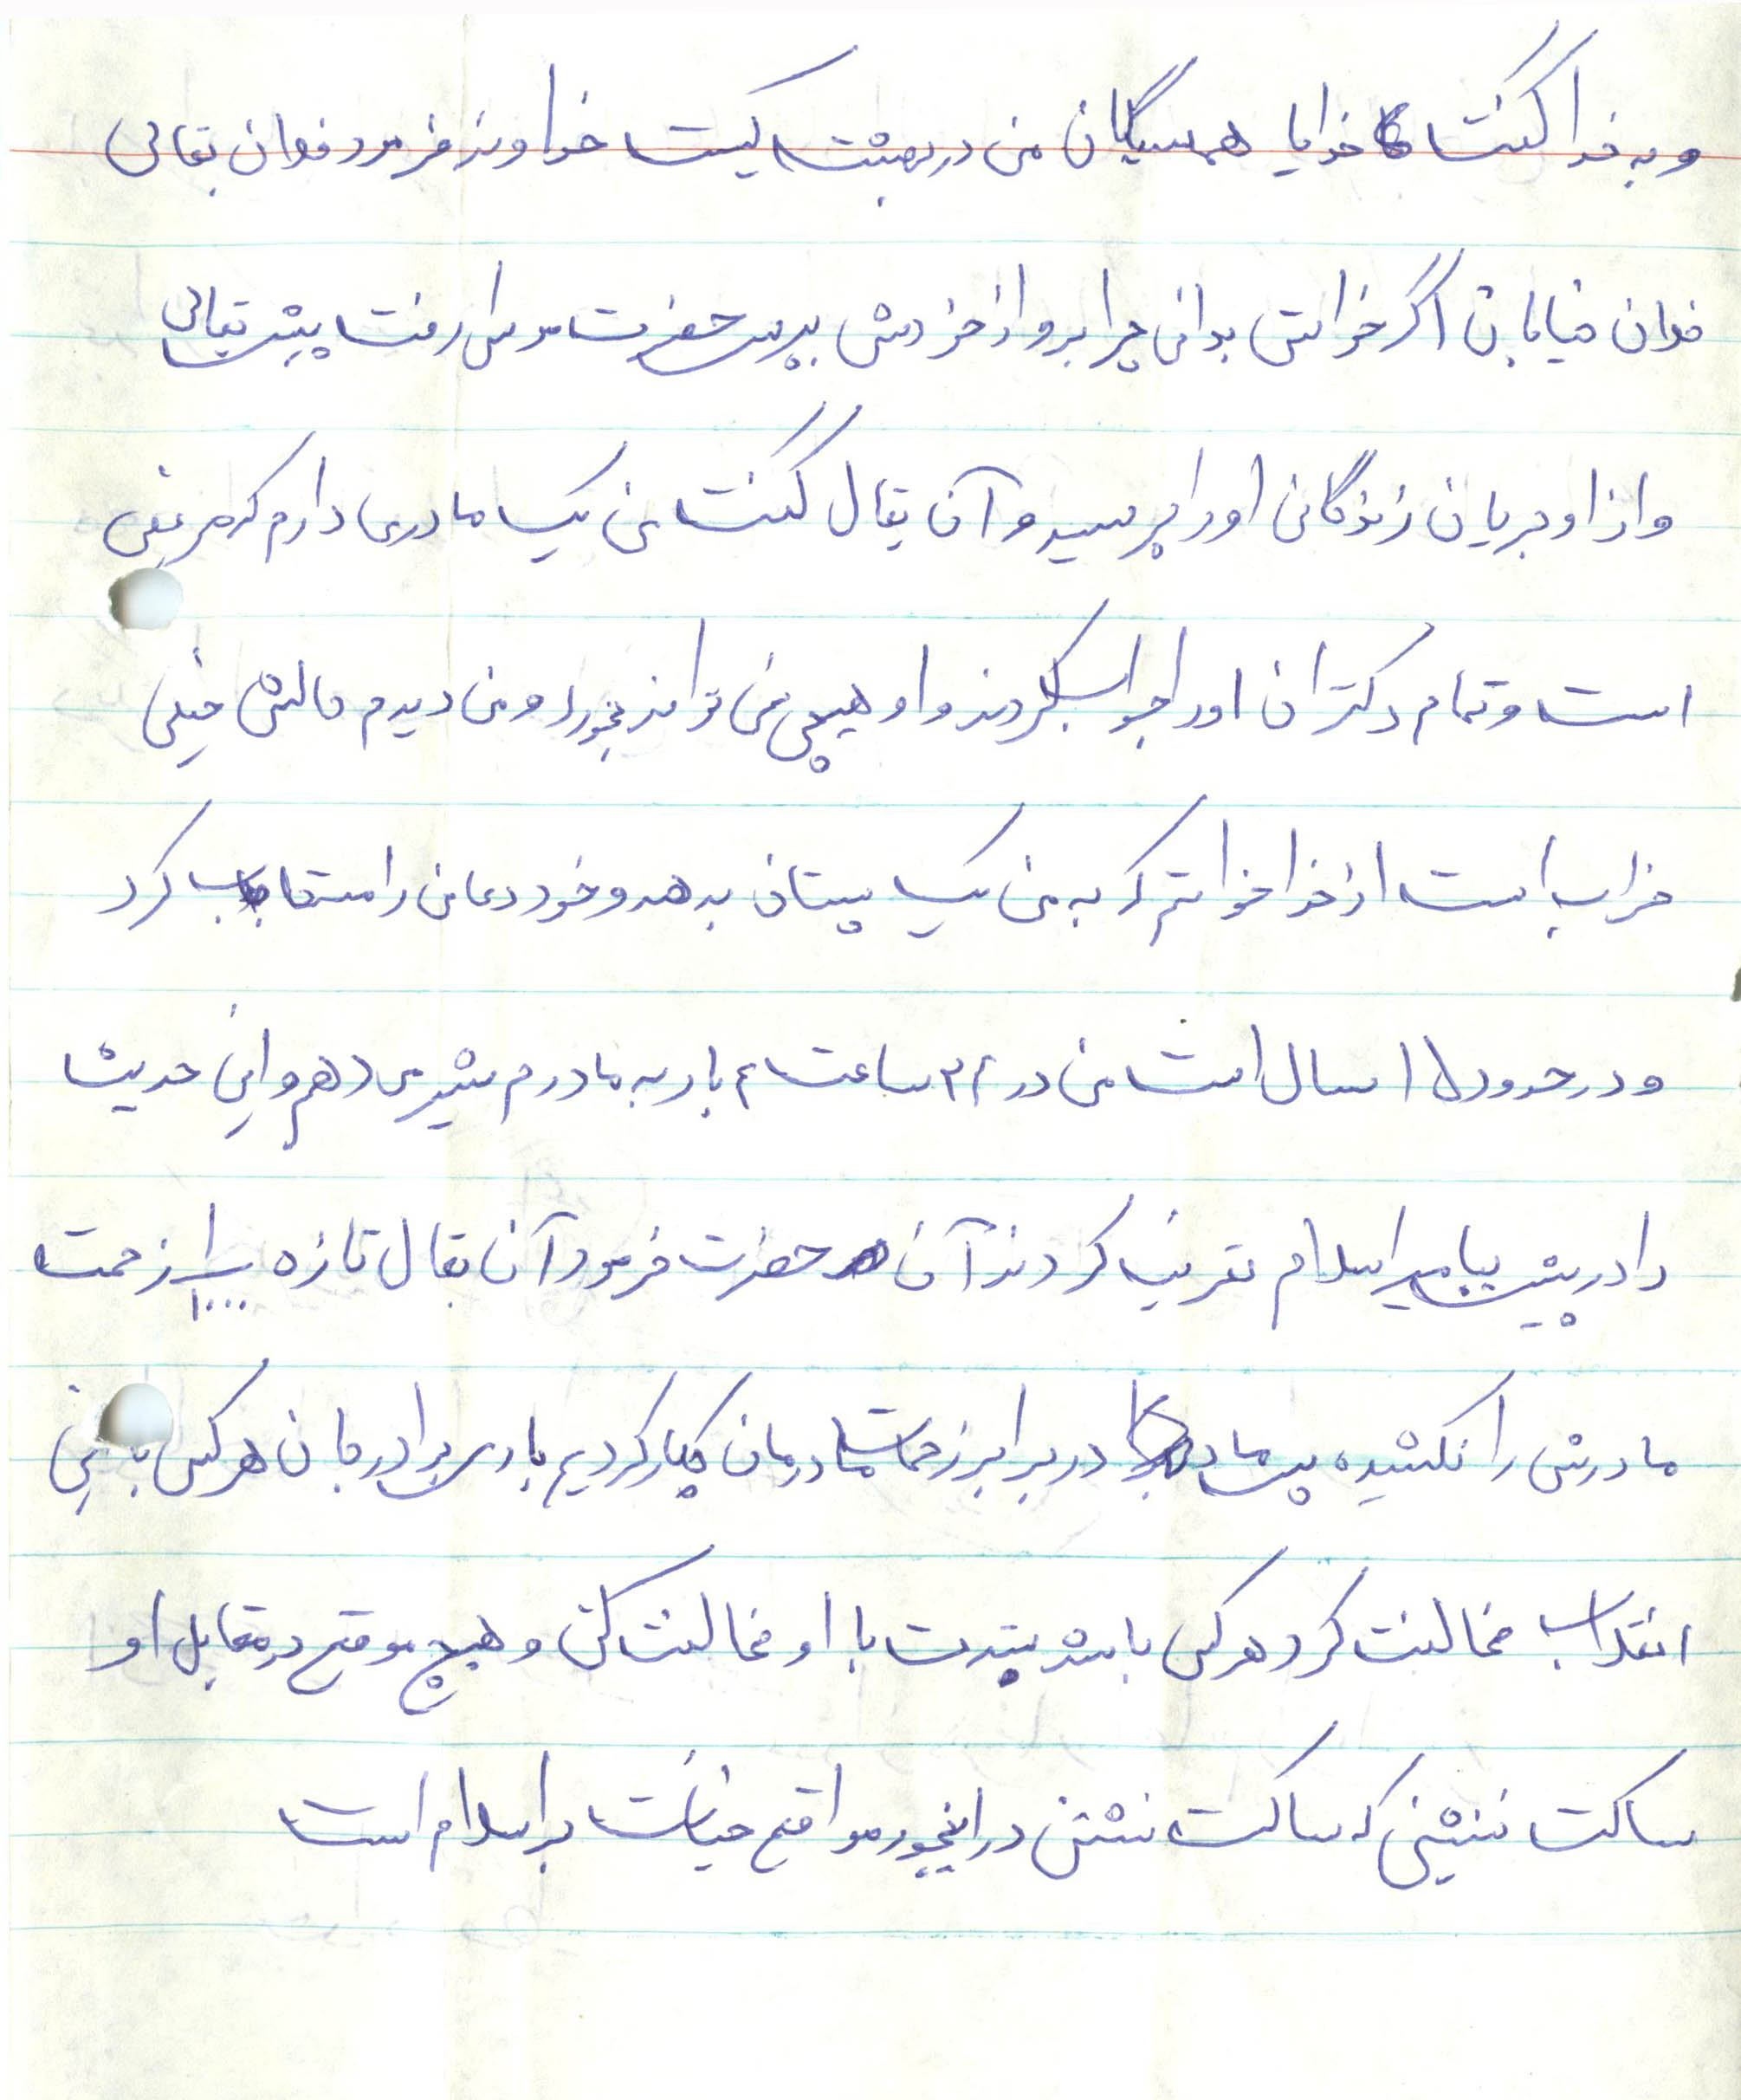 و به خدا گفت خدایا همسیگان من در بهشت کیست خداوند فرمود فلان بقالی
فلان خیابان اگر خواستی بدانی چرا برو از خودش بپرس حضرت موسی رفت پیش بقالی
و از او جریان زندگانی او را پرسید و آن بقال گفت من یک مادری دارم که مریض
است و تمام دکتران او را جواب کردند و او هیچی نمی تواند بخورد و من دیدم حالش خیلی
خراب است از خدا خواستم که به من یک پستان بدهد و خود دعا من را مستجاب کرد
و در حدود ۱۵ سال است من در ۲۴ ساعت ۴ بار به مادرم شیر می دهم و این حدیث
را در پیش پیامبر اسلام تعریف کردند آن حضرت فرمود آن بقال تازه ۱/۱۰۰۰ زحمت
مادرش را نکشیده پس ما در برابر زحمات مادرمان چکار کردیم باری برادر جان هر کس با این
انقلاب مخالفت کرد هر کس باشد بشدت با او مخالفت کن و هیچ موقع در مقابل او
ساکت ننشینی که ساکت نشستن در اینجور مواقع خیانت بر اسلام است